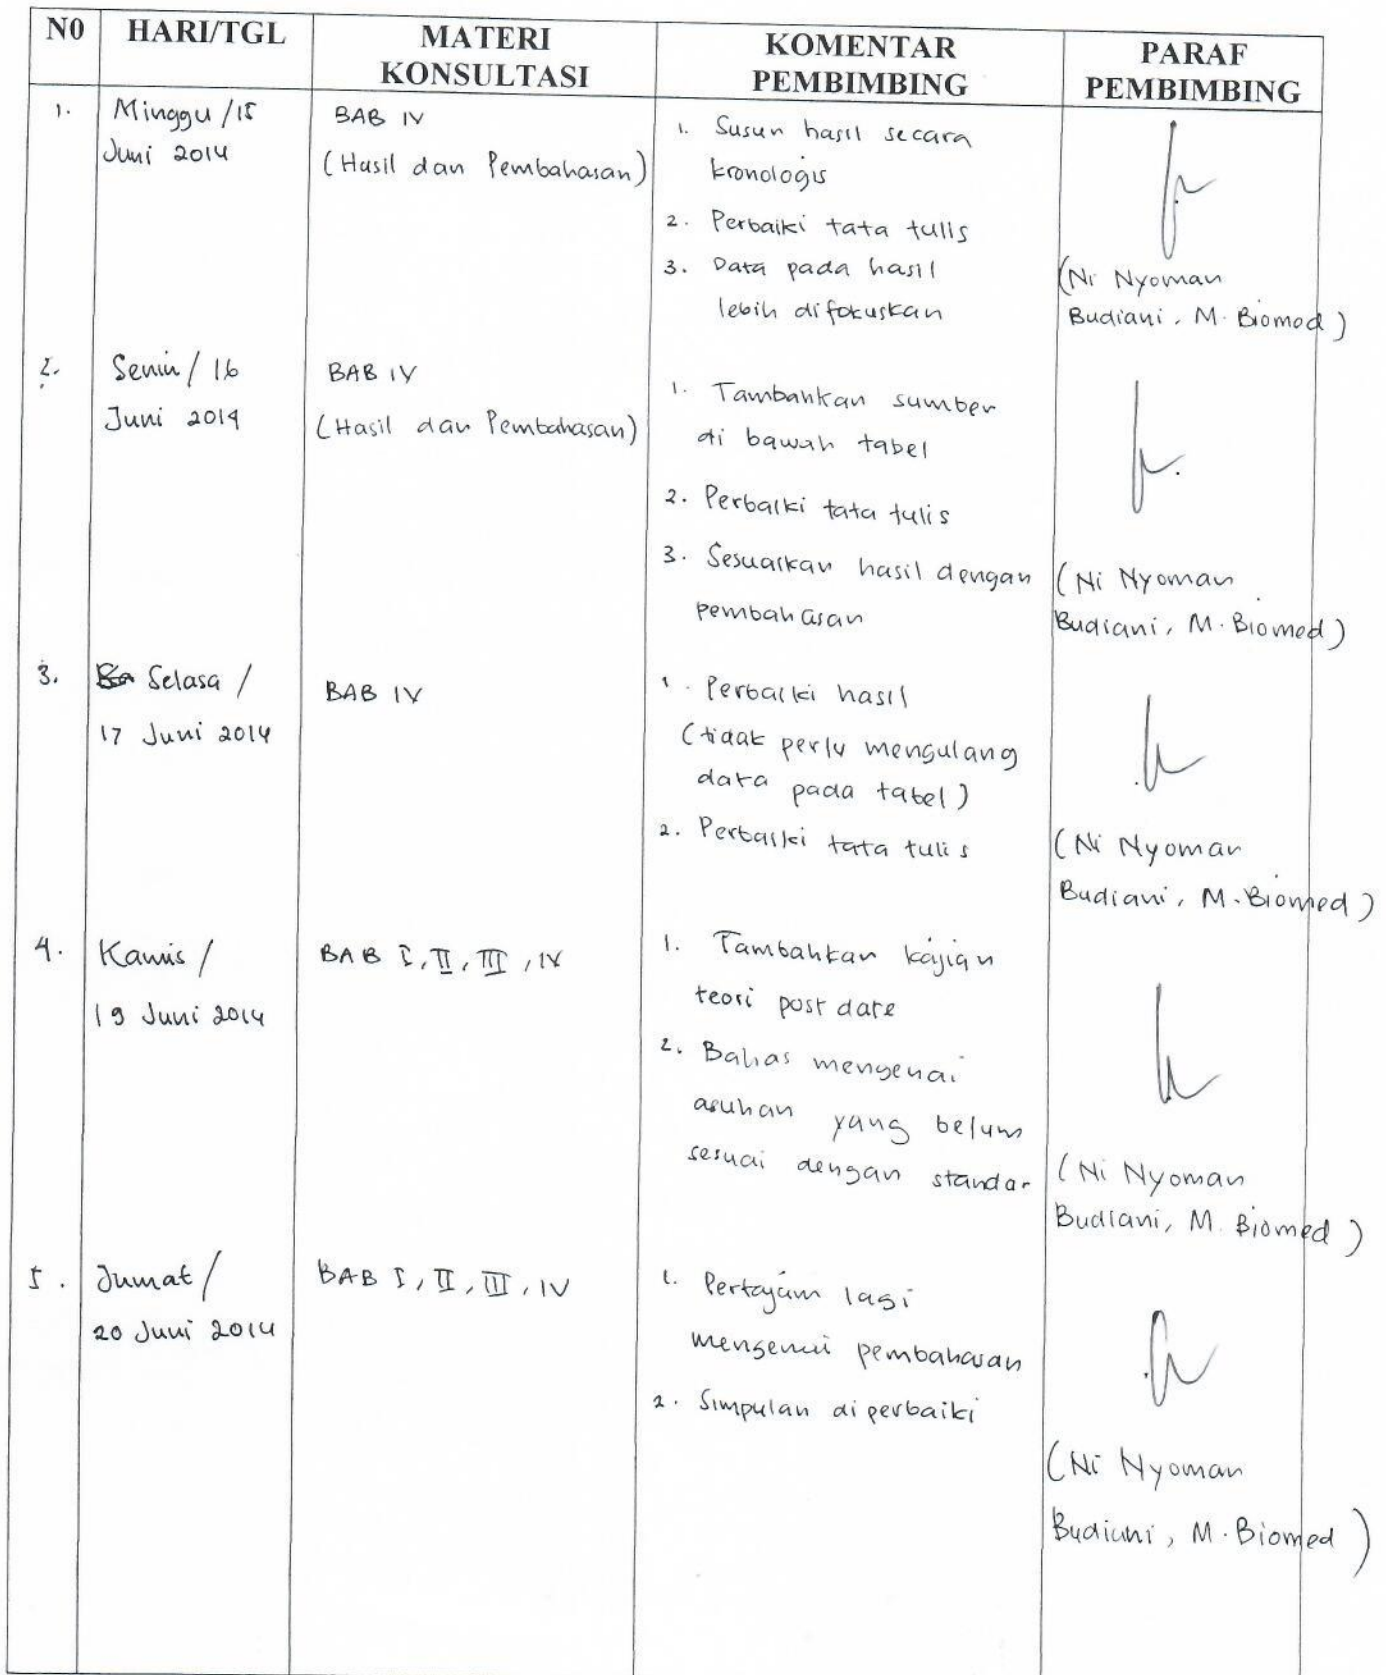 N0
HARI/TGL
MATERI
KONSULTASI
KOMENTAR
PEMBIMBING
PARAF
PEMBIMBING
1.
Minggu / 15
Juni 2014
BAB IV
(Hasil dan Pembahasan)
1. Susun hasil secara
kronologis
2. Perbaiki tata tulis
3. Data pada hasil
lebih difokuskan
(Ni Nyoman
Budiani, M. Biomed)
2.
Senin / 16
Juni 2014
BAB IV
(Hasil dan Pembahasan)
1. Tambahkan sumber
di bawah tabel
2. Perbaiki tata tulis
3. Sesuaikan hasil dengan
pembahasan
(Ni Nyoman
Budiani, M. Biomed)
3.
Selasa /
17 Juni 2014
BAB IV
1. Perbaiki hasil
(tidak perlu mengulang
data pada tabel)
2. Perbaiki tata tulis
(Ni Nyoman
Budiani, M. Biomed)
4.
Kamis /
19 Juni 2014
BAB I, II, III, IV
1. Tambahkan kajian
teori post date
2. Bahas mengenai
asuhan yang belum
sesuai dengan standar
(Ni Nyoman
Budiani, M. Biomed)
5.
Jumat /
20 Juni 2014
BAB I, II, III, IV
1. Pertajam lagi
mengenai pembahasan
2. Simpulan diperbaiki
(Ni Nyoman
Budiani, M. Biomed)